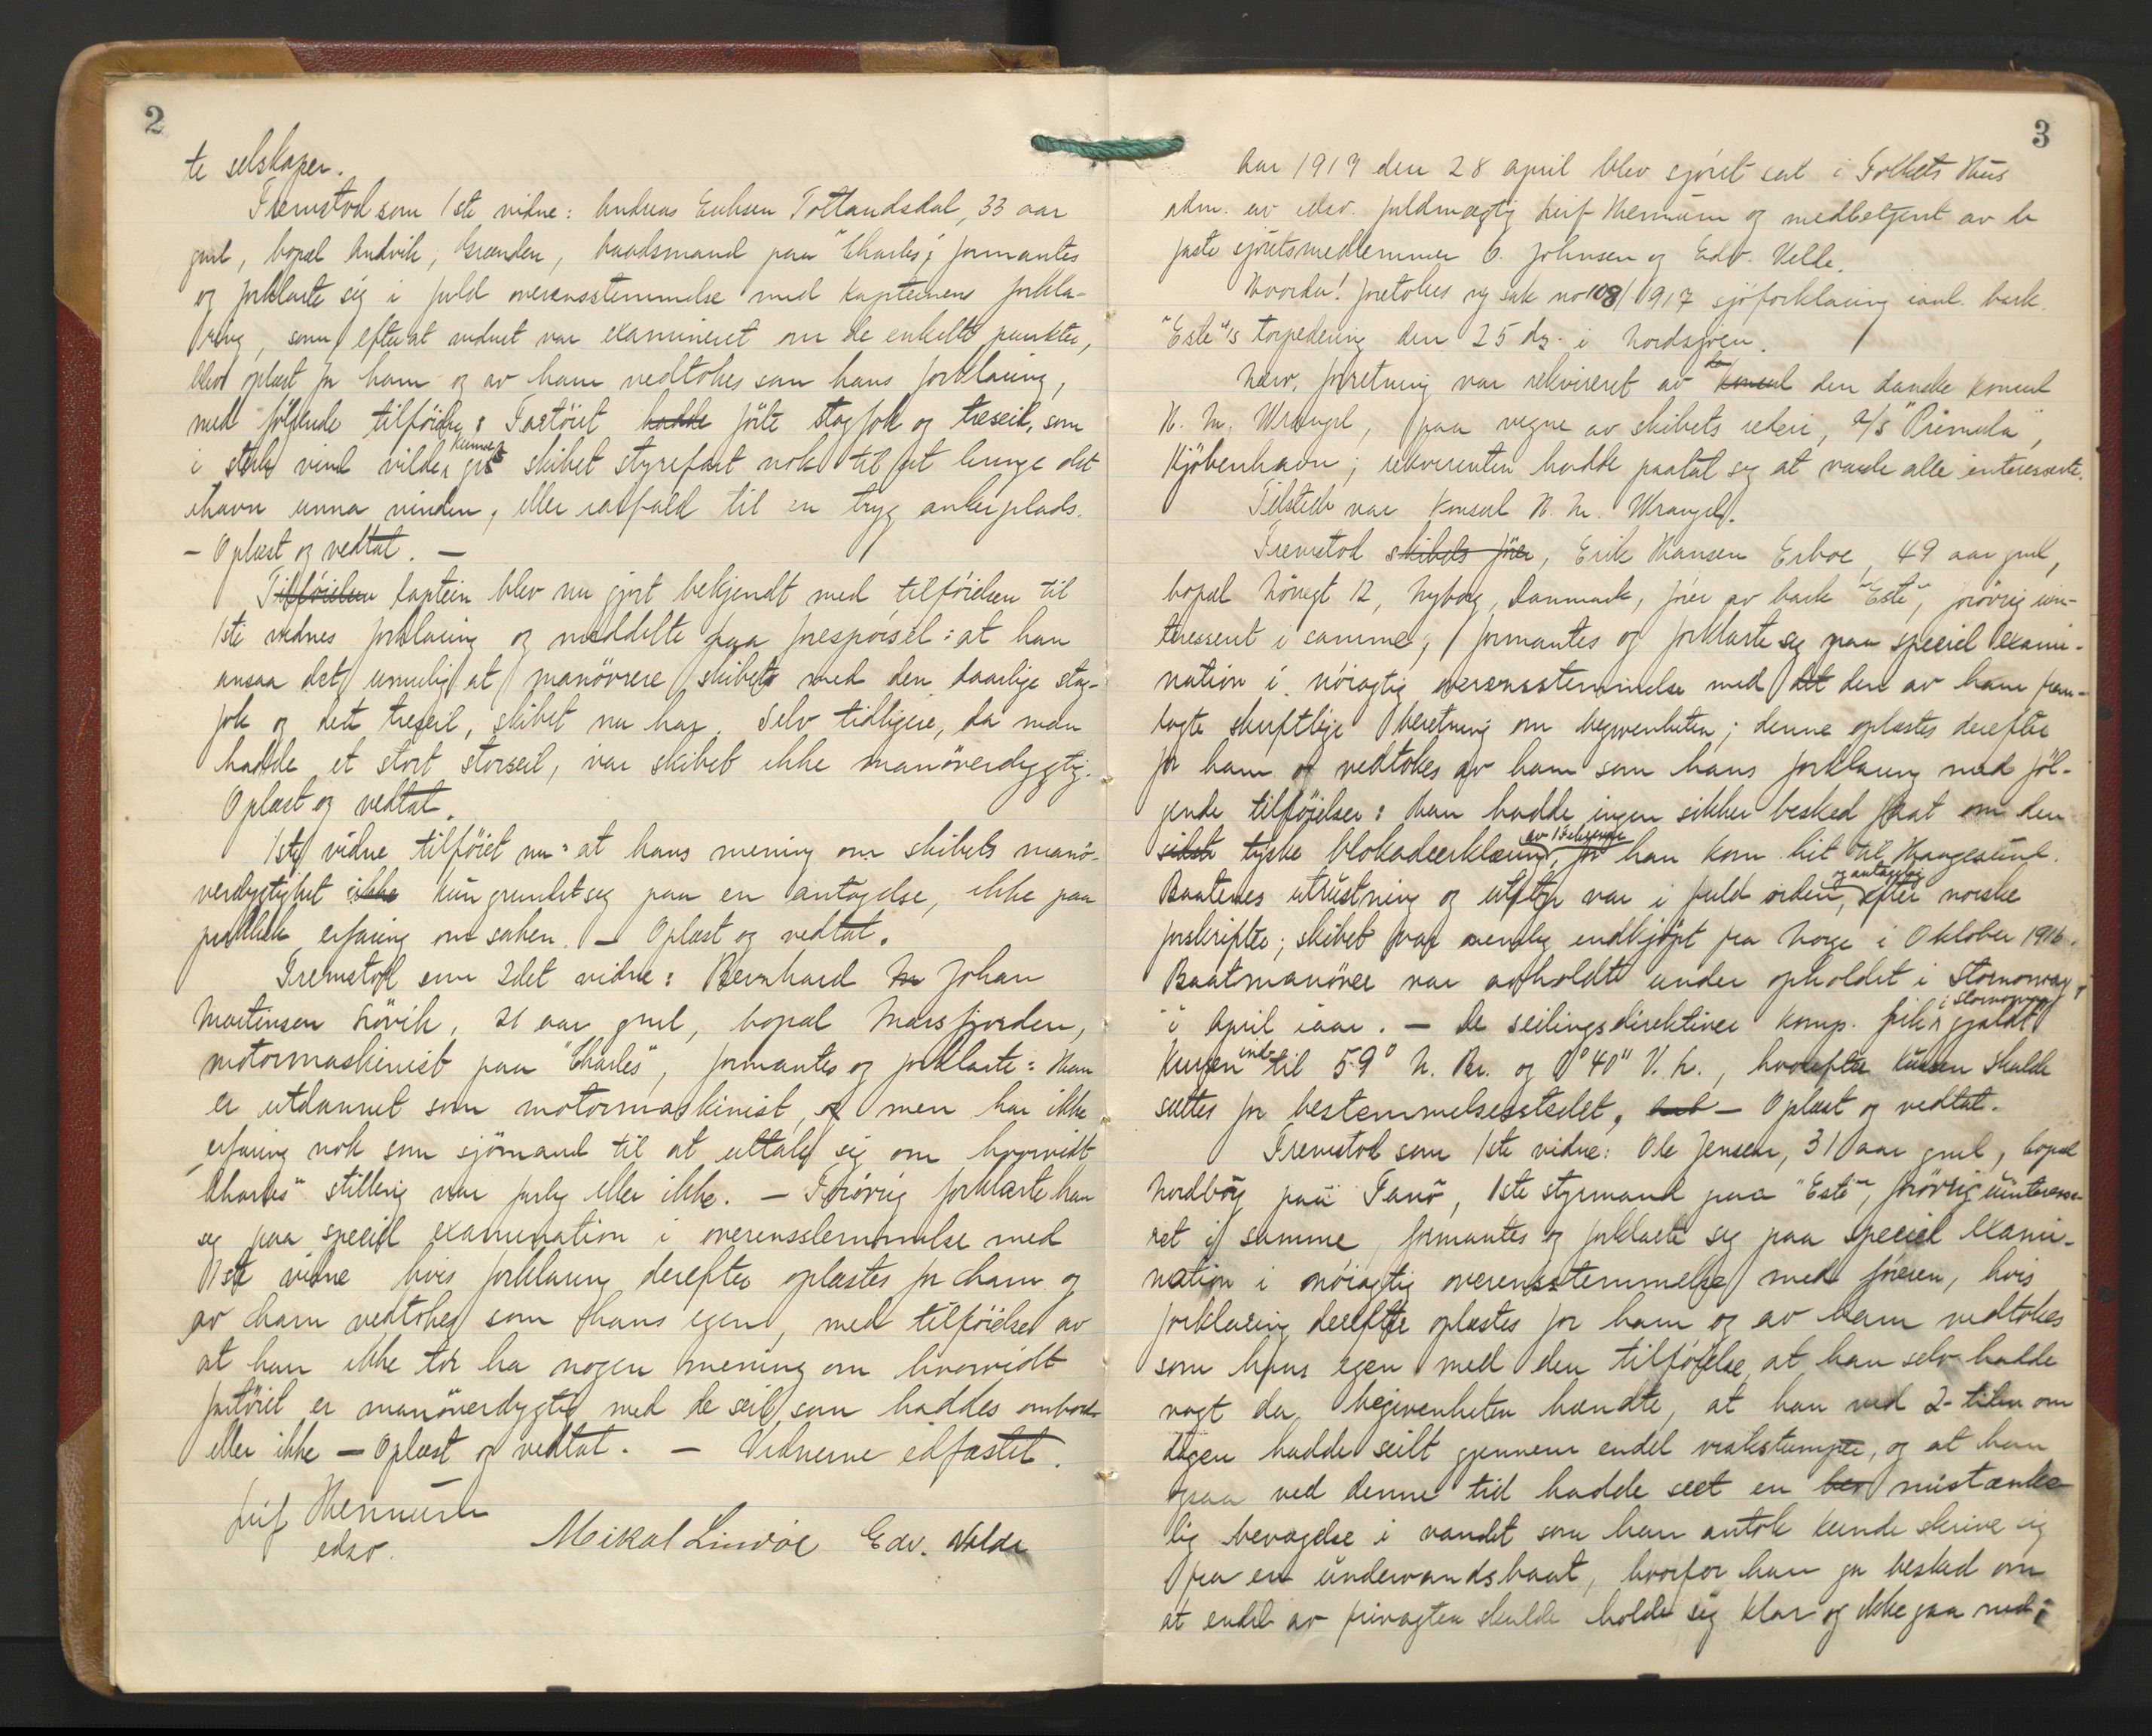 2
te selskaper.
Fremstod som 1ste vidne: Andreas Eriksen Totlandsdal, 33 aar
gml, bopæl Andvik, Grænden, baadsmand paa "Charles"; formantes
og forklarte sig i fuld overensstemmelse med kapteinens forkla-
ring, som efterat vidnet var examineret om de enkelte punkter,
blev oplæst for ham og av ham vedtokes som hans forklaring,
med følgende tilføielse: Fartöiet hadde förte stagfok og treseil, som
i sterk vind vilde kunne gjöre skibet styrefast nok til at bringe det
ihavn unna vinden, eller ialfald til en tryg ankerplads.
– Oplæst og vedtat. –
Tilföielsen Kaptein blev nu gjort bekjendt med tilföielsen til
1ste vidnes forklaring og meddelte paa forespörsel: at han
ansaa det umulig at manövrere skibet med den daarlige stag-
fok og det treseil, skibet nu har. Selv tidligere, da man
hadde et stort storseil, var skibet ikke manöverdygtig.
Oplæst og vedtat.
1ste vidne tilföiet nu: at hans mening om skibets manö-
verdygtighet ikke kun grundet seg paa en antagelse, ikke paa
praktisk erfaring om saken. – Oplæst og vedtat.
Fremstod som 2det vidne: Bernhard M Johan
Martinsen Lövik, 21 aar gml, bopæl Marsfjorden,
motormaskinist paa "Charles", formantes og forklarte: Han
er utdannet som motormaskinist, og men har ikke
erfaring nok som sjömand til at uttale sig om hvorvidt
"Charles" stilling var farlig eller ikke. – Forövrig forklarte han
sig paa speciel examination i overensstemmelse med
1ste vidne hvis forklaring derefter oplæstes for ham og
av ham vedtokes som hans egen, med tilföielse av
at han ikke tör ha nogen mening om hvorvidt
fartöiet er manöverdygtig med de seil som haddes ombord
eller ikke – Oplæst og vedtat. – Vidnerne edfæstet.
Leif Hermun
edsv. Mikal Lindöe Edv. Valde
3
Aar 1917 den 28 april blev sjöret sat i Folkets Hus
adm. av edsv. fuldmægtig Leif Hermun og medbetjent av de
faste sjöretsmedlemmer O. Johnsen og Edv. Velle.
Hvorda! foretokes ny sak no 108/1917 sjöforklaring ianl. bark
"Este"s torpedering den 25 ds. i Nordsjöen.
Nærv. forretning var rekvireret av den konsul den danske konsul
H. M. Wrangel, paa vegne av skibets rederi, A/S "Primula",
Kjöbenhavn; rekvirenten hadde paatat sig at varsle alle interesserte.
Tilstede var Konsul H. M. Wrangel.
Fremstod skibets förer, Erik Hansen Erboe, 49 aar gml,
bopæl Nörregt 12, Nyborg, Danmark, förer av bark "Este", foröveig uin-
teressert i samme, formantes og forklarte sig paa speciel exami-
nation i nöiagtig overensstemmelse med det den av ham frem-
lagte skriftlige beretning om begivenheten; denne oplæstes derefter
for ham og vedtokes av ham som hans forklaring med föl-
gende tilföielser: Han hadde ingen sikker besked faat om den
sidste tyske blokadeerklæring av 1 februar, för han kom hit til Haugesund.
Baatenes utrustning og utstyr var i fuld orden, og antagelig efter norske
forskrifter; skibet var nemlig indkjöpt fra Norge i Oktober 1916.
Baatmanöver var avholdt under opholdet i Stornoway,
i April iaar. – De seilingsdirektiver komp. fik i Stornoway gjaldt
kursen ind til 59° N. Br. og 0° 40" V. L., hvorefter kursen skulde
sættes for bestemmelsesstedet, – Oplæst og vedtat.
Fremstod som 1ste vidne: Ole Jensen, 31 aar gml, bopæl
Nordby paa Fanö, 1ste styrmand paa "Este", foröveig uinteresse-
ret i samme, formantes og forklarte sig paa speciel exami-
nation i nöiagtig overensstemmelse med föreren, hvis
forklaring derefter oplæstes for ham og av ham vedtokes
som hans egen med den tilföielse, at han selv hadde
vagt da begivenheten hændte, at han ved 2-tiden om
dagen hadde seilt gjennem endel vrakstumper, og at han
ogsaa ved denne tid hadde seet en bev mistænke-
lig bevægelse i vandet som han antok kunde skrive sig
fra en undervandsbaat, hvorfor han ga besked om
at endel av frivagten skulde holde sig klar og ikke gaa ned;